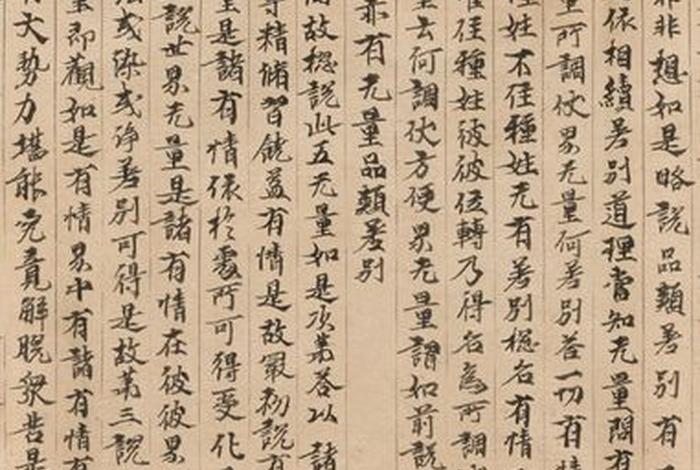 非非想如是略說品類差別有
依相續差別道理當知无量問有
量所調伏界无量何差別荅一切有情
住姓不住種姓无有差別捴名有情
住種姓彼彼位轉乃得名為所調
云何調伏方便界无量謂如前說
亦有无量品類差別
故捴說此五无量如是次第荅以諸
精俻習饒益有情是故冣初說有
是諸有情依於處所可得受化
說世界无量是諸有情在彼彼界
或染或淨差別可得是故苐三說
即觀如是有情界中有諸有情有
大勢力堪能究竟解脫衆苦是